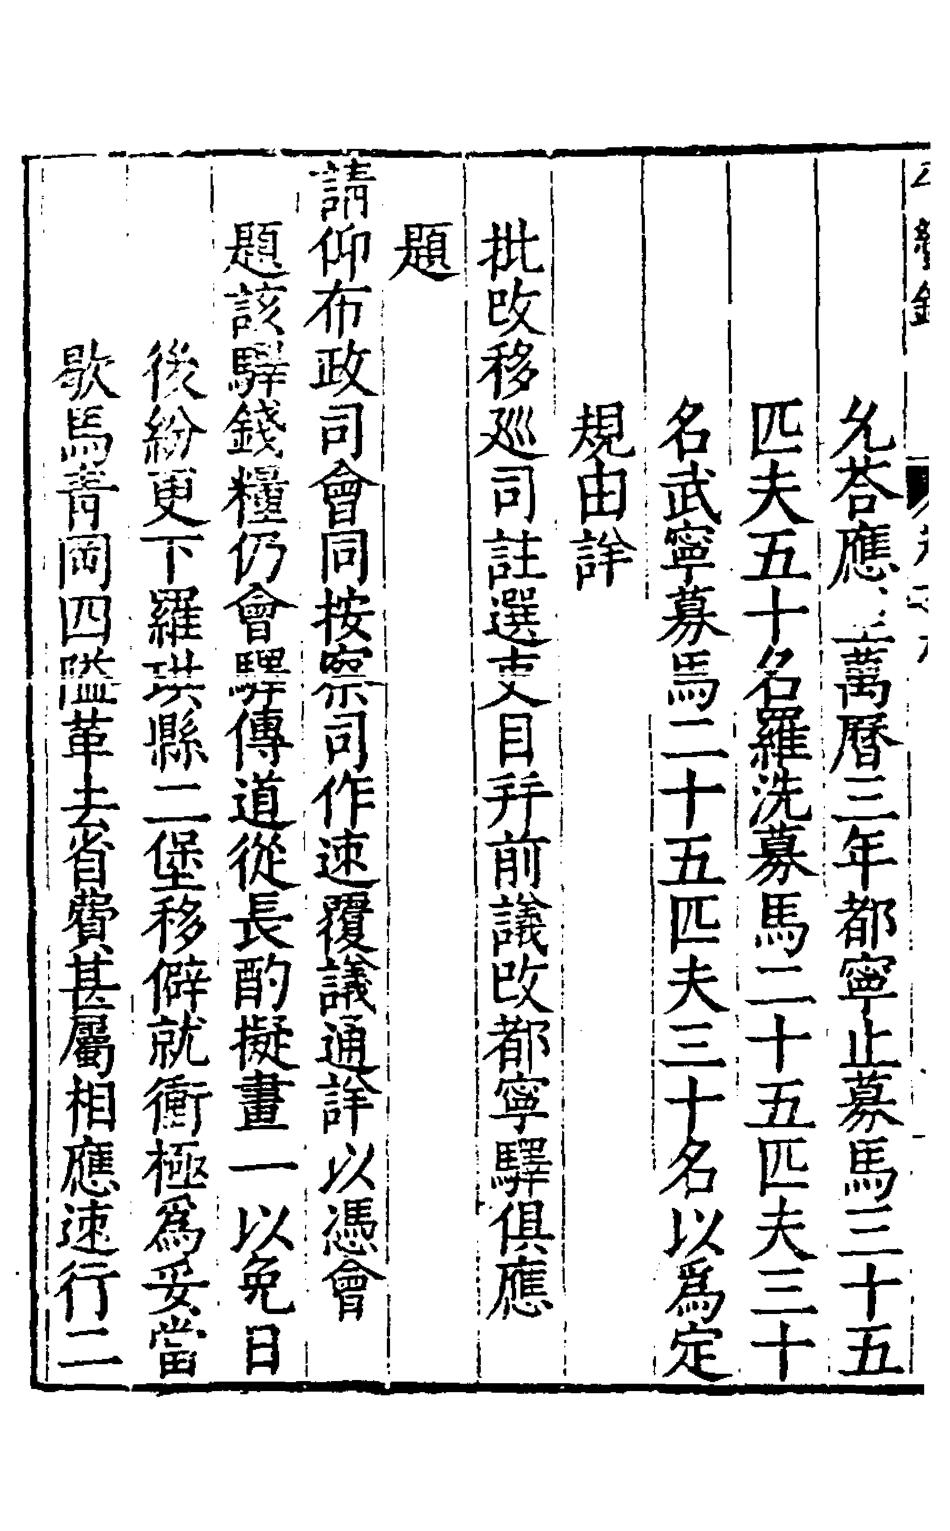 允荅應至萬曆三年都寧止募馬三十五
匹夫五十名羅洗募馬二十五匹夫三十
名武寧募馬二十五匹夫三十名以爲定
規由詳
批改移廵司註選吏目幷前議改都寧驛俱應
題
請仰布政司會同按察司作速覆議通詳以憑會
題該驛錢糧仍會驛傳道從長酌擬畫一以免日
後紛更下羅珙縣二堡移僻就衝極爲妥當
歇馬青岡四隘革去省費甚屬相應速行二